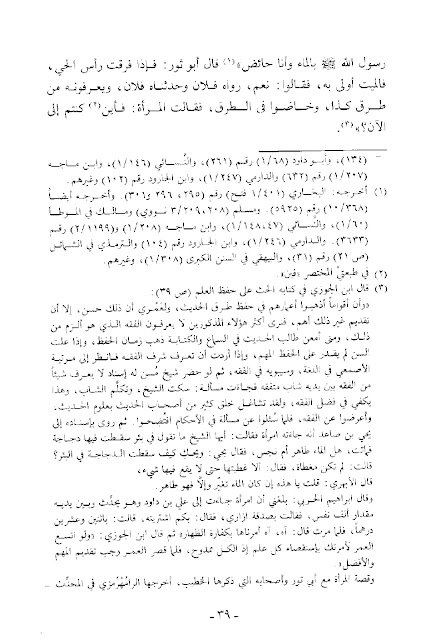 رسول الله ﷺ بالماء وأنا حائض»(١) قال أبو ثور: فإذا فرقت رأس الحي،
فالميت أولى به، فقالوا: نعم، رواه فلان وحدثناه فلان، ويعرفونه من
طرق كذا، وخاضوا في الطرق، فقالت المرأة: فأين(٢) كنتم إلى
الآن؟»(٣).
– (١٣٤)، وأبو داود (١/٦٨) رقم (٢٦١)، والنَّسائي (١/١٤٦)، وابن ماجه
(١/٢٠٧) رقم (٦٣٢) والدارمي (١/٢٤٧)، وابن الجارود رقم (١٠٢) وغيرهم.
(١) أخرجه: البخاري (١/٤٠١ فتح) رقم (٢٩٥، ٢٩٦ و٣٠١). وأخرجه أيضاً
(١٠/٣٦٨) رقم (٥٩٢٥). ومسلم (٣/٢٠٩،٢٠٨ نووي) ومالك في الموطأ
(١/٦٠)، والنَّسائي (١/١٤٨،١٤٧)، وابن ماجه (١/٢٠٨) و(٢/١١٩٩) رقم
(٣٦٣٣). والدارمي (١/٢٤٦)، وابن الجارود رقم (١٠٤) والترمذي في الشمائل
(ص ٢١) رقم (٣١)، والبيهقي في السنن الكبرى (١/٣٠٨)، وغيرهم.
(٢) في طبعتي المختصر
(٣) قال ابن الجوزي في كتابه الحث على حفظ العلم (ص ٣٩):
«وأن أقواماً أذهبوا أعمارهم في حفظ طرق الحديث، ولعمري أن ذلك حسن، إلا أن
تقديم غير ذلك أهم، فنرى أكثر هؤلاء المذكورين لا يعرفون الفقه الذي هو ألزم من
ذلك، ومتى أمعن طالب الحديث في السماع والكتابة ذهب زمان الحفظ، وإذا علت
السن لم يقدر على الحفظ المهم، وإذا أردت أن تعرف شرف الفقه فانظر إلى مرتبة
الأصمعي في اللغة، وسيبويه في الفقه، ثم لو حضر شيخ مُسن له إسناد لا يعرف شيئاً
من الفقه بين يديه شاب متفقه فجاءت مسألة: سكت الشيخ، وتكلَّم الشاب، وهذا
يكفي في فضل الفقه، ولقد تشاغل خلق كثير من أصحاب الحديث بعلوم الحديث.
وأعرضوا عن الفقه، فلما سُئلوا عن مسألة في الأحكام افتضحوا. ثم روى بإسناده إلى
يحيى بن صاعد أنه جاءته امرأة فقالت: أيها الشيخ ما تقول في بئر سقطت فيها دجاجة
فماتت، هل الماء طاهر أم نجس، فقال يحيى: ويحك كيف سقطت الدجاجة في البئر؟
قالت: لم تكن مغطاة، فقال: ألا غطيتها حتى لا يقع فيها شيء،
قال الأبهري: قلت يا هذه إن كان الماء تغيَّر وإلاَّ فهو طاهر.
وقال إبراهيم الحربي: بلغني أن امرأة جاءت إلى علي بن داود وهو يحدِّث وبين يديه
مقدار ألف نفس، فقالت بصدقة إزاري، فقال: بكم اشتريته. قالت: باثنين وعشرين
درهماً، فلما مرت قال: آه، آه أمرناها بكفارة الظهار» ثم قال ابن الجوزي: «ولو اتسع
العمر لأمرتك باستقصاء كل علم إذ الكل ممدوح، فلما قصر العمر وجب تقديم المهم
والأفضل».
وقصة المرأة مع أبي ثور وأصحابه التي ذكرها الخطيب، أخرجها الرامَهُرمُزي في المحدِّث –
– ٣٩ –